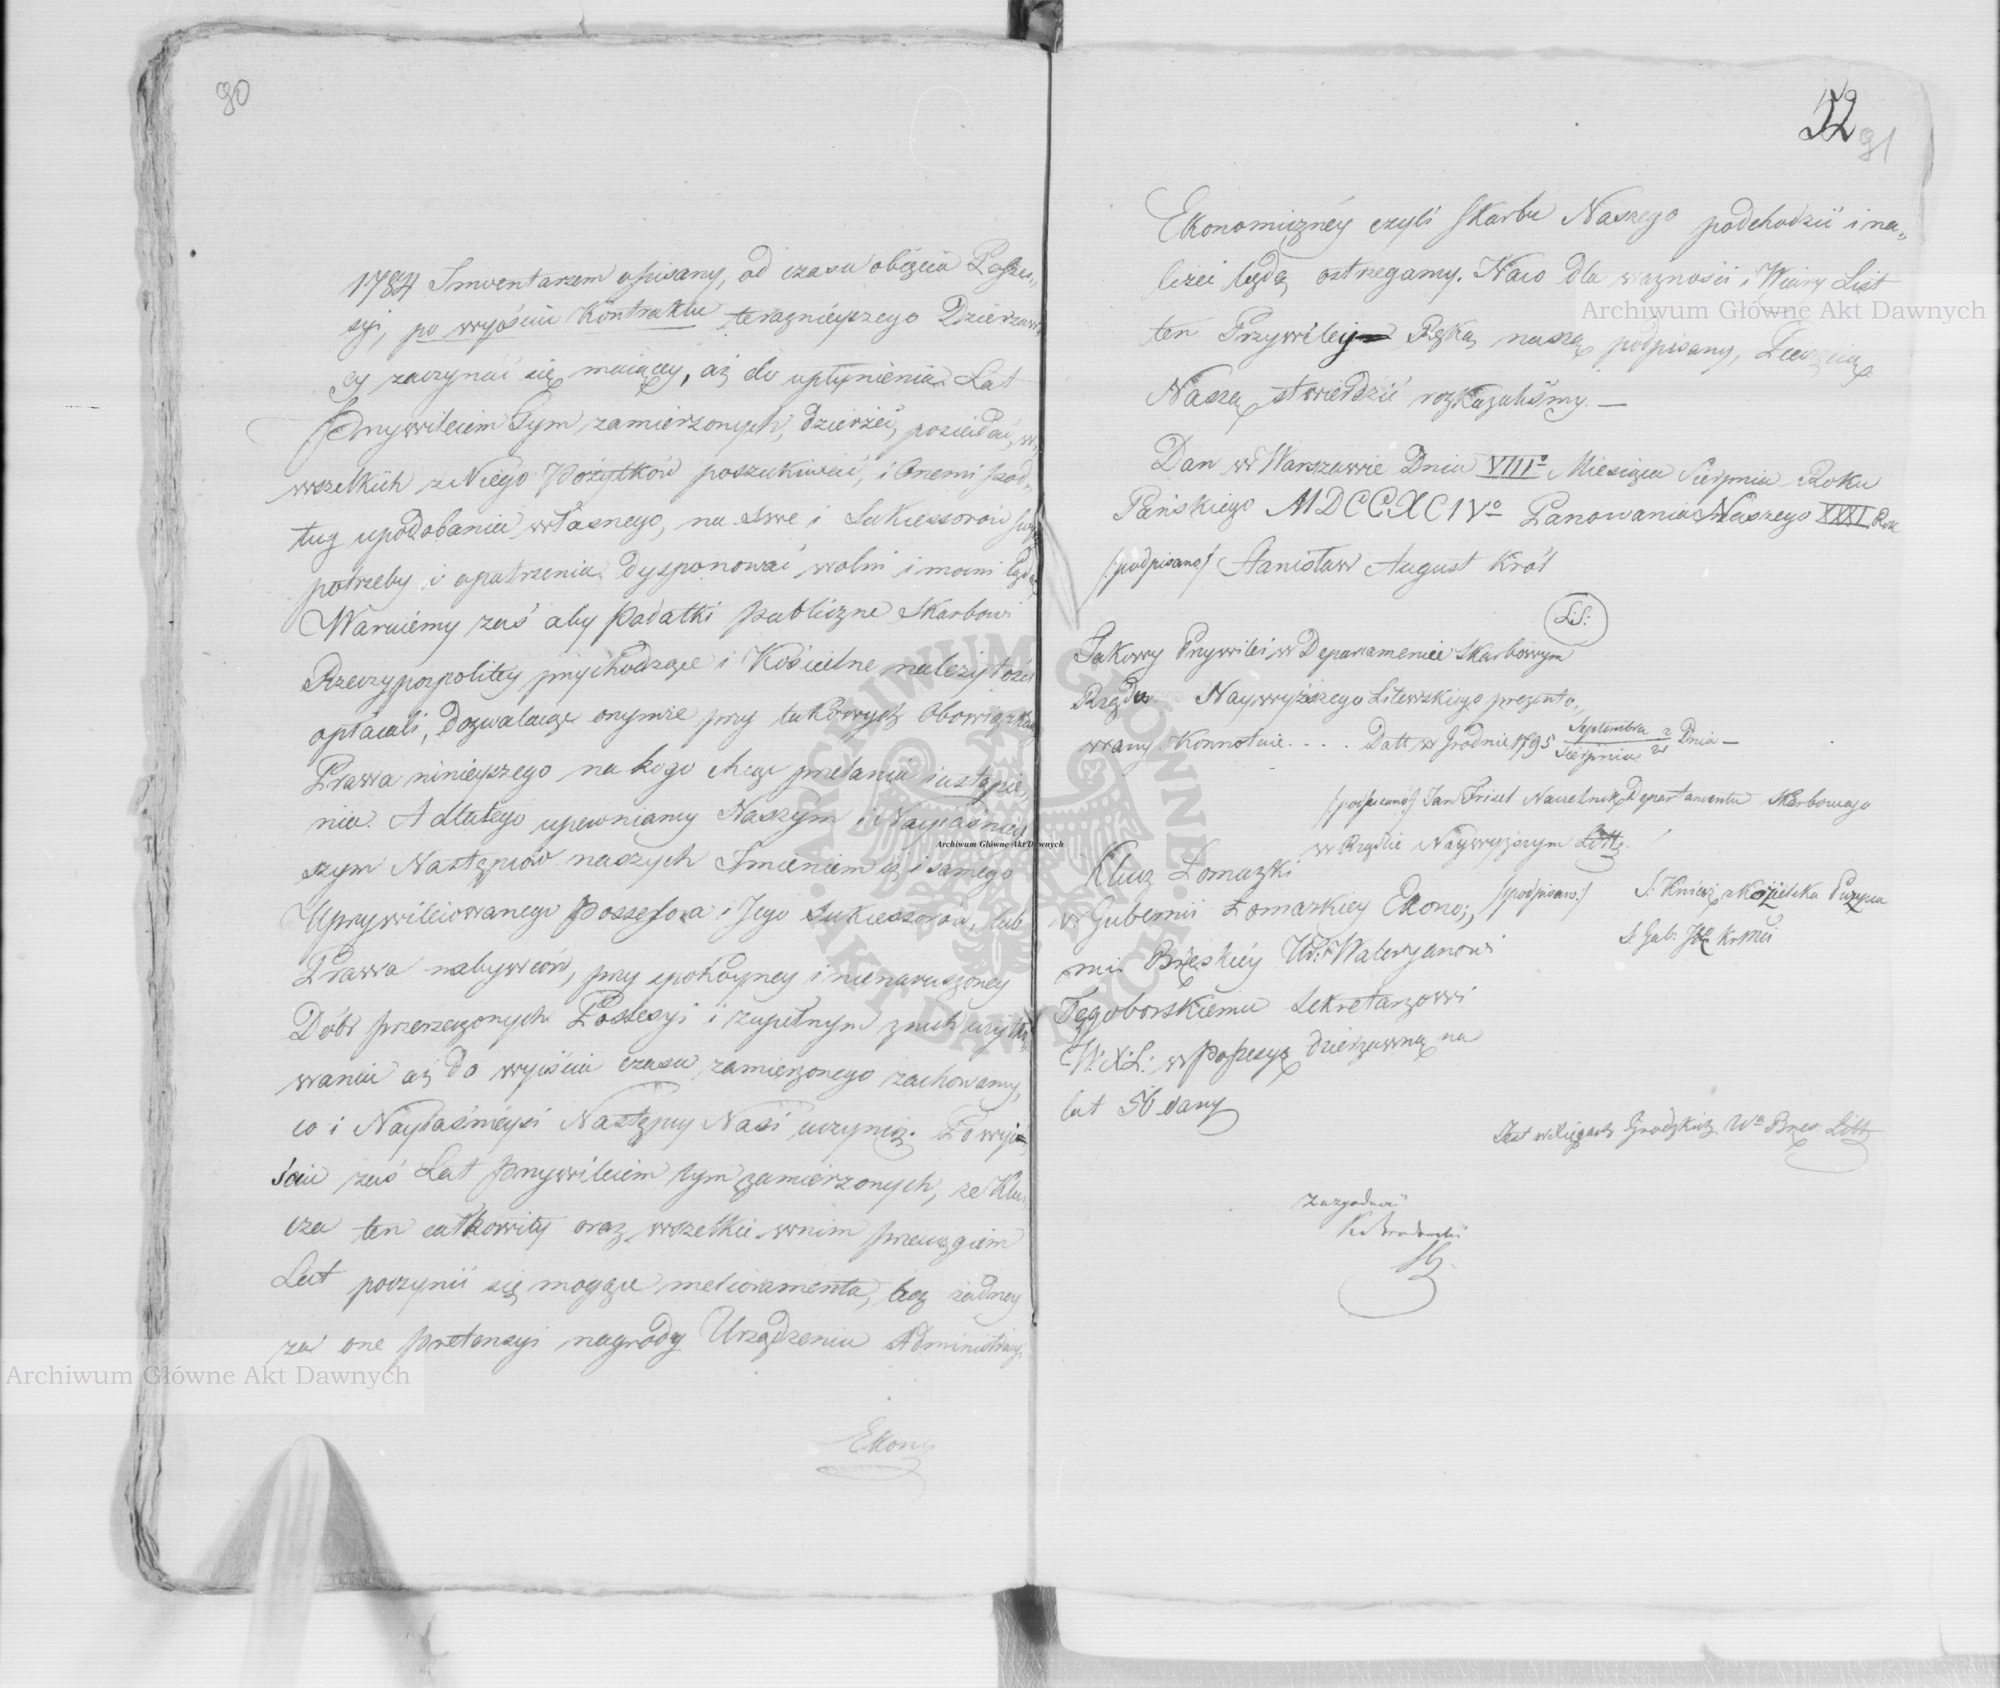 90
1784 Inwentarzem opisany, od czasu obięcia Posses„
syi, po wyiściu Kontraktu teraznieyszego Dzierzaw
cy zaczynać się maiący, aż do upłynienia Lat
Przywileiem tym zamierzonych, dzierżeć, posiadać, w„
wszelkich z Niego Pożytków poszukiwać, i Onemi pod„
ług upodobania własnego, na swe i Sukcessorów swych
potrzeby i opatrzenia dysponować wolni i mocni będą
Waruiemy zaś aby Podatki publiczne Skarbowi
Rzeczypospolitey przychodzące i Kościelne należytości
opłacali, dozwalaiąc onymże przy takowych Obowiązkach
Prawa ninieyszego na kogo chcąc przelania i ustąpie„
nia. A dlatego upewniamy Naszym i Nayiaśniey
szym Następców naszych Imieniem iż i samego
Uprzywileiowanego Possessora i Jego Sukcessorów, lub
Prawa nabywców, przy spokoyney i nienaruszoney
Dóbr przerzeczonych Possesyi i zupełnym z nich użytko„
waniu aż do wyiścia czasu zamierzonego zachowamy,
co i Nayiaśnieysi Następcy Nasi uczynią. Po wyi„
ściu zaś Lat Przywileiem tym zamierzonych, że Klu„
cza ten całkowity oraz wszelkie w nim przeciągiem
Lat poczynić się mogące melioramenta, bez żadney
za one pretensyi nagrody Urządzeniu Administracyi
Ekono
52
91
Ekonomiczney czyli Skarbu Naszego podchodzić i na„
leżeć będą ostrzegamy. Naco dla ważności i Wiary List
ten Przywiley Ręką naszą podpisany, Pieczęcią
Naszą stwierdzić rozkazaliśmy. —
Dan w Warszawie Dnia VIIIº Miesiąca Sierpnia Roku
Pańskiego MDCCXCIVº Panowania Naszego XXXI Rok
/:podpisano:/ Stanisław August Król
L.S:
Takowy Przywilei w Departamencie Skarbowym
Rządu Naywyższego Litewskiego prezento„
wany. Konnotuie. . . . Datt w Grodnie 1795 Septembra 2 Dnia —
Sierpnia 21
/:podpisano:/ Jan Frizel Naczelnik Departamentu Skarbowego
w Rządzie Naywyższym Litt:
Klucz Łomazki
w Gubernii Łomazkiey Ekono„
mii Brzeskiey Ur: Waleryanowi
Tęgoborskiemu Sekretarzowi
W: X: L: w Possesyą dzierzawną na
lat 50 dany
/:podpisano:/ J. Kniaź z Kozielska Puzyna
S. Gab: J K Mci
Jest w Xięgach Grodzkich Wa Brzes Litt
Za zgodność